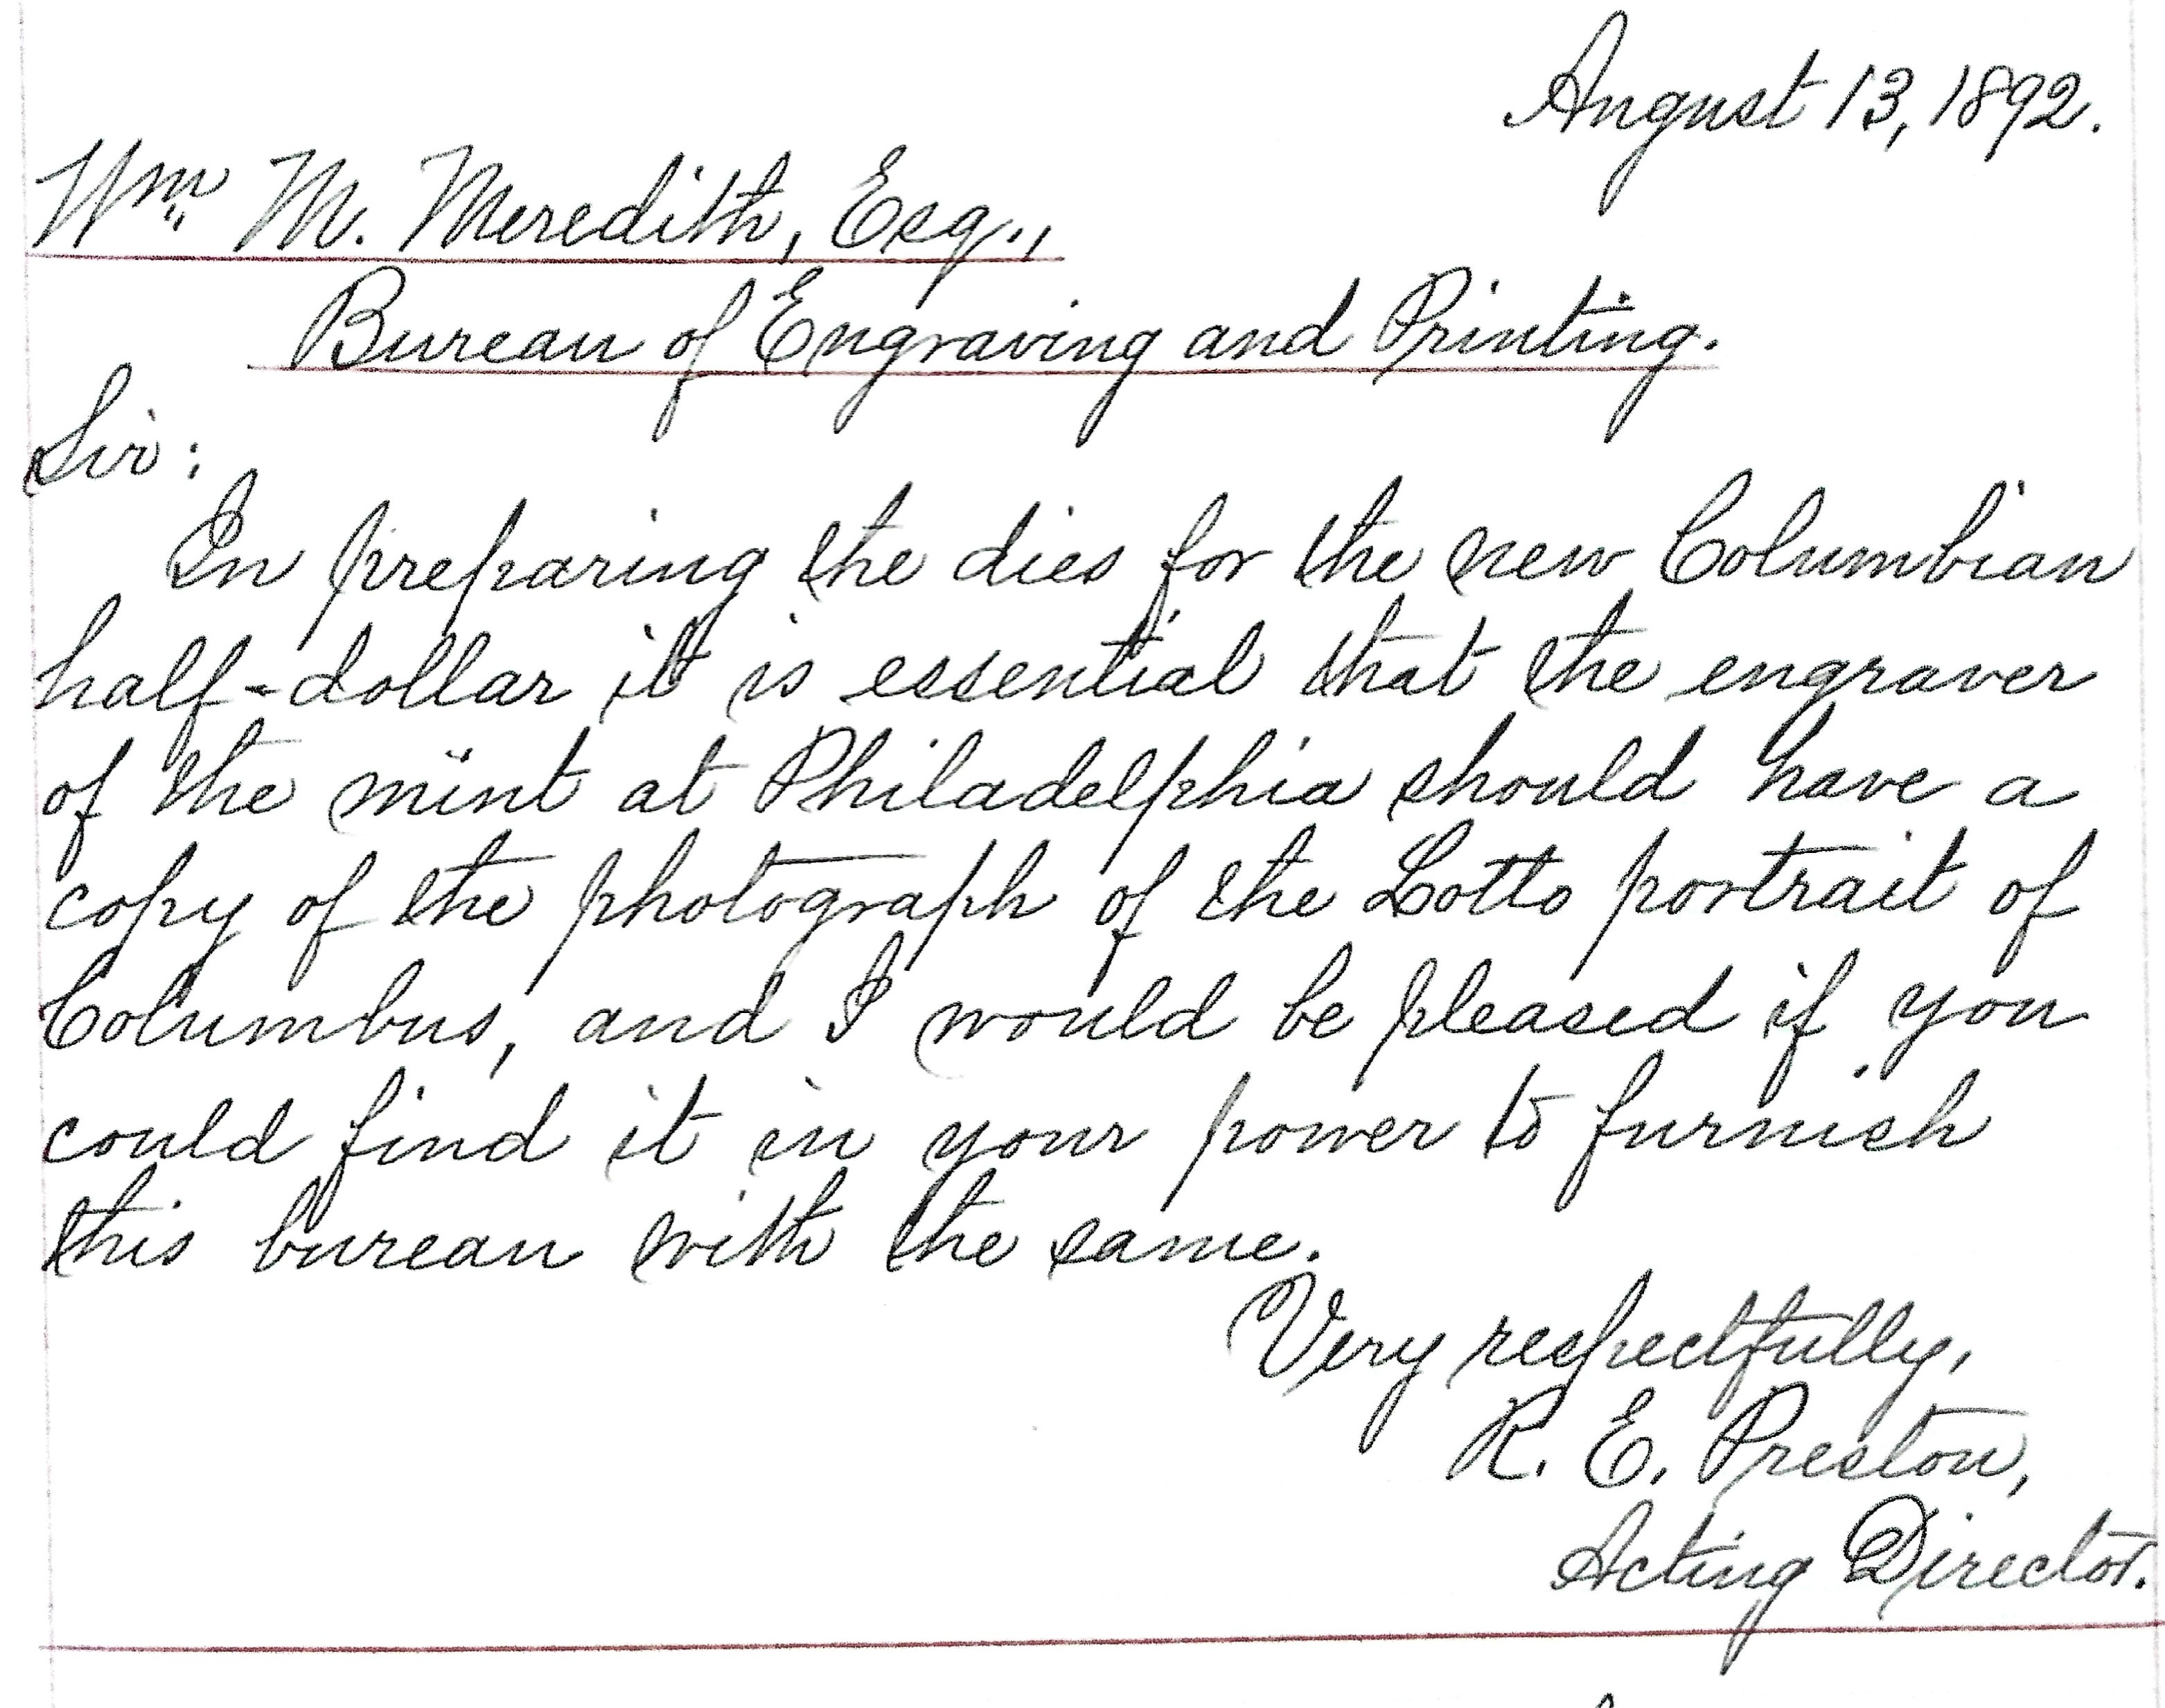 August 13, 1892.
Wm. M. Meredith, Esq.,
Bureau of Engraving and Printing.
Sir:
In preparing the dies for the new Columbian
half-dollar it is essential that the engraver
of the mint at Philadelphia should have a
copy of the photograph of the Lotto portrait of
Columbus, and I would be pleased if you
could find it in your power to furnish
this bureau with the same.
Very respectfully,
R. E. Preston,
Acting Director.